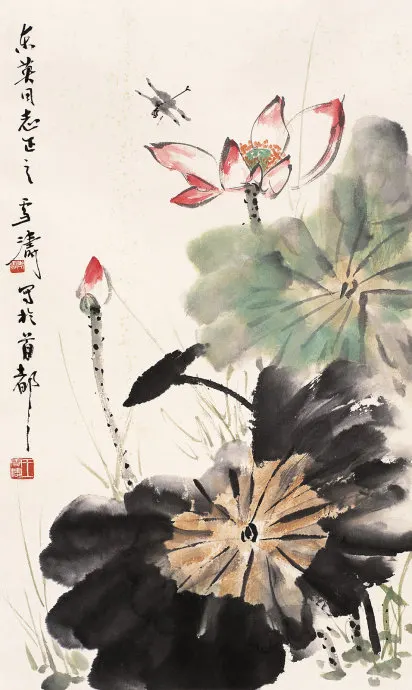 东英同志正之雪涛写於首都